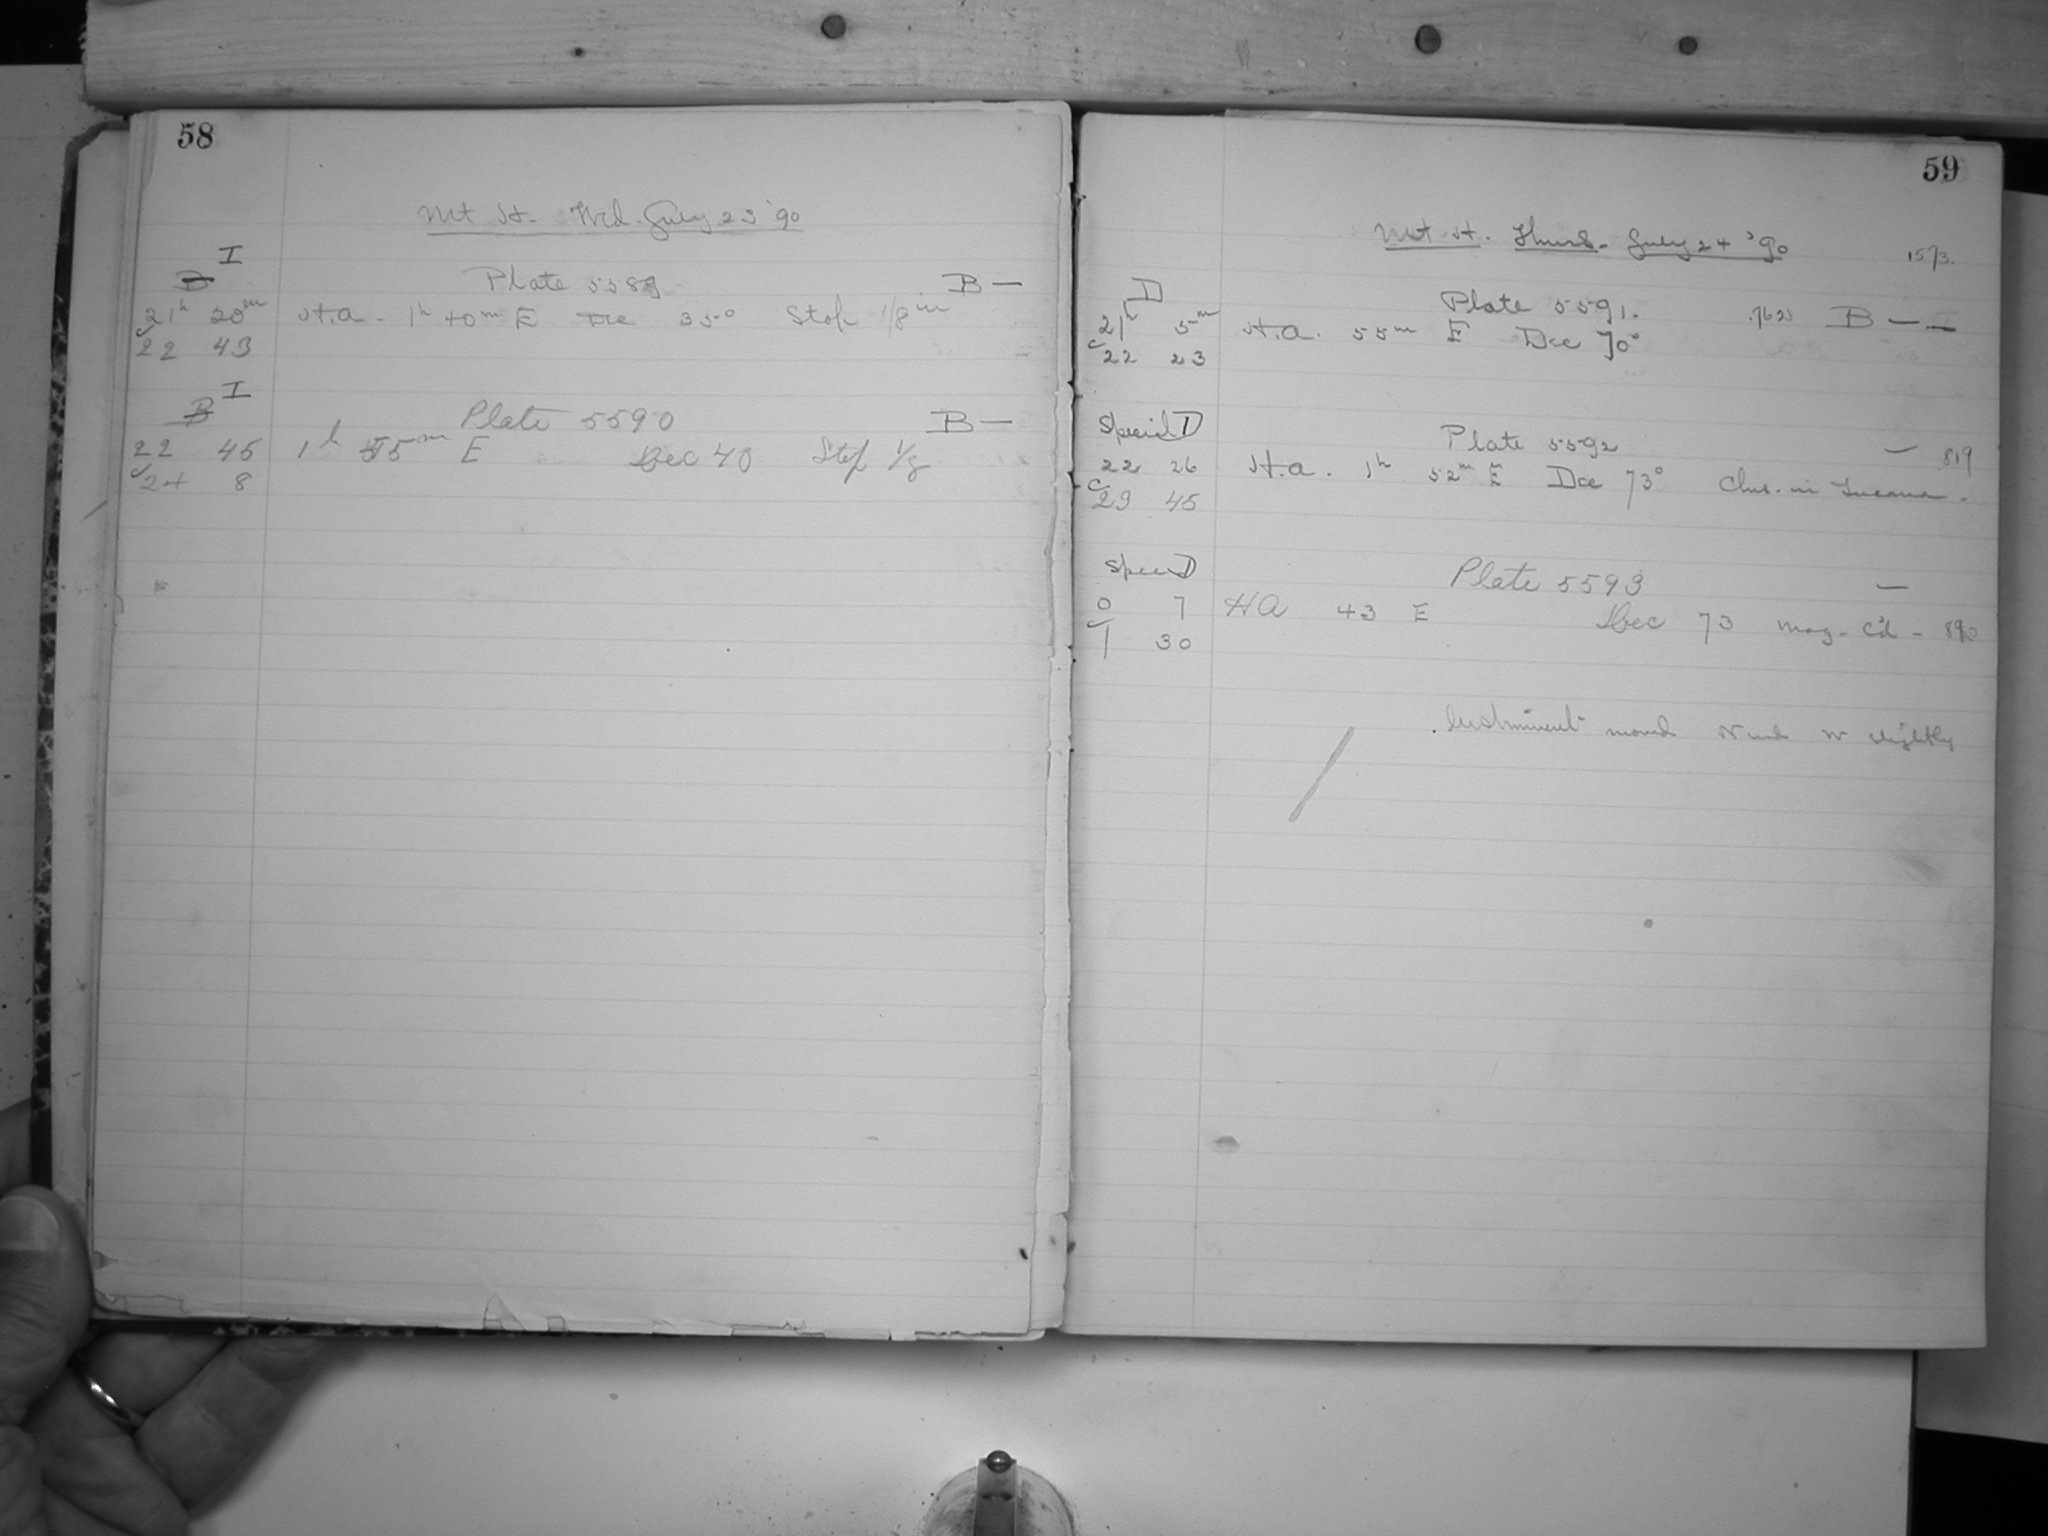 58
Mt H. Wed. July 23 '90
I
B Plate 5589 B —
21h 20m H.a. 1h 40m E Dec 35° Stop 1/8 in
22 43
I
B Plate 5590 B —
22 45 1h 55m E Dec 40 Stop 1/8
24 8
59
Mt H. Thurs. July 24 '90 1573.
D Plate 5591. B — —
21h 5m H.a. 55m E Dec 70°
22 23
Special D Plate 5592 — 819
22 26 H.a. 1h 52m E Dec 73° Clus. in Tucana.
23 45
Special D Plate 5593 —
0 7 HA 43 E Dec 73 Mag. Cl'd - 890
1 30
Instrument moved N end W slightly